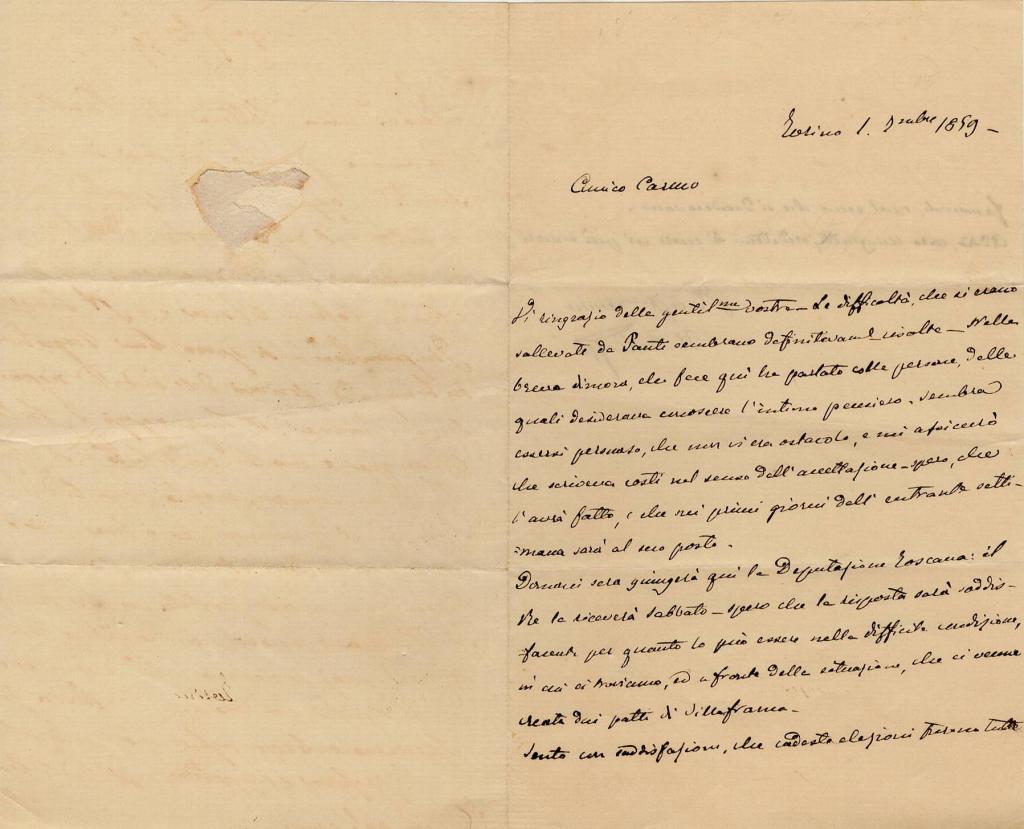 Torino 1. 7mbre 1859 –
Amico Carmo
Vi ringrazio della gentilma vostra – Le difficoltà, che si erano
sollevate da Fanti sembrano definitivamte risolte – Nella
breve dimora, che fece qui ha parlato colle persone, delle
quali desiderava conoscere l'intimo pensiero. Sembra
essersi persuaso, che non vi era ostacolo, e mi assicurò
che scriveva costì nel senso dell'accettazione – spero, che
l'avrà fatto, e che nei primi giorni dell'entrante setti-
=mana sarà al suo posto.
Domani sera giungerà qui la Deputazione Toscana: il
Re la riceverà Sabbato – spero che la risposta sarà soddis-
facente per quanto lo può essere nella difficile condizione,
in cui ci troviamo, ed a fronte della situazione, che ci venne
creata dai patti di Villafranca –
Sento con soddisfazione, che codeste elezioni furono tutte